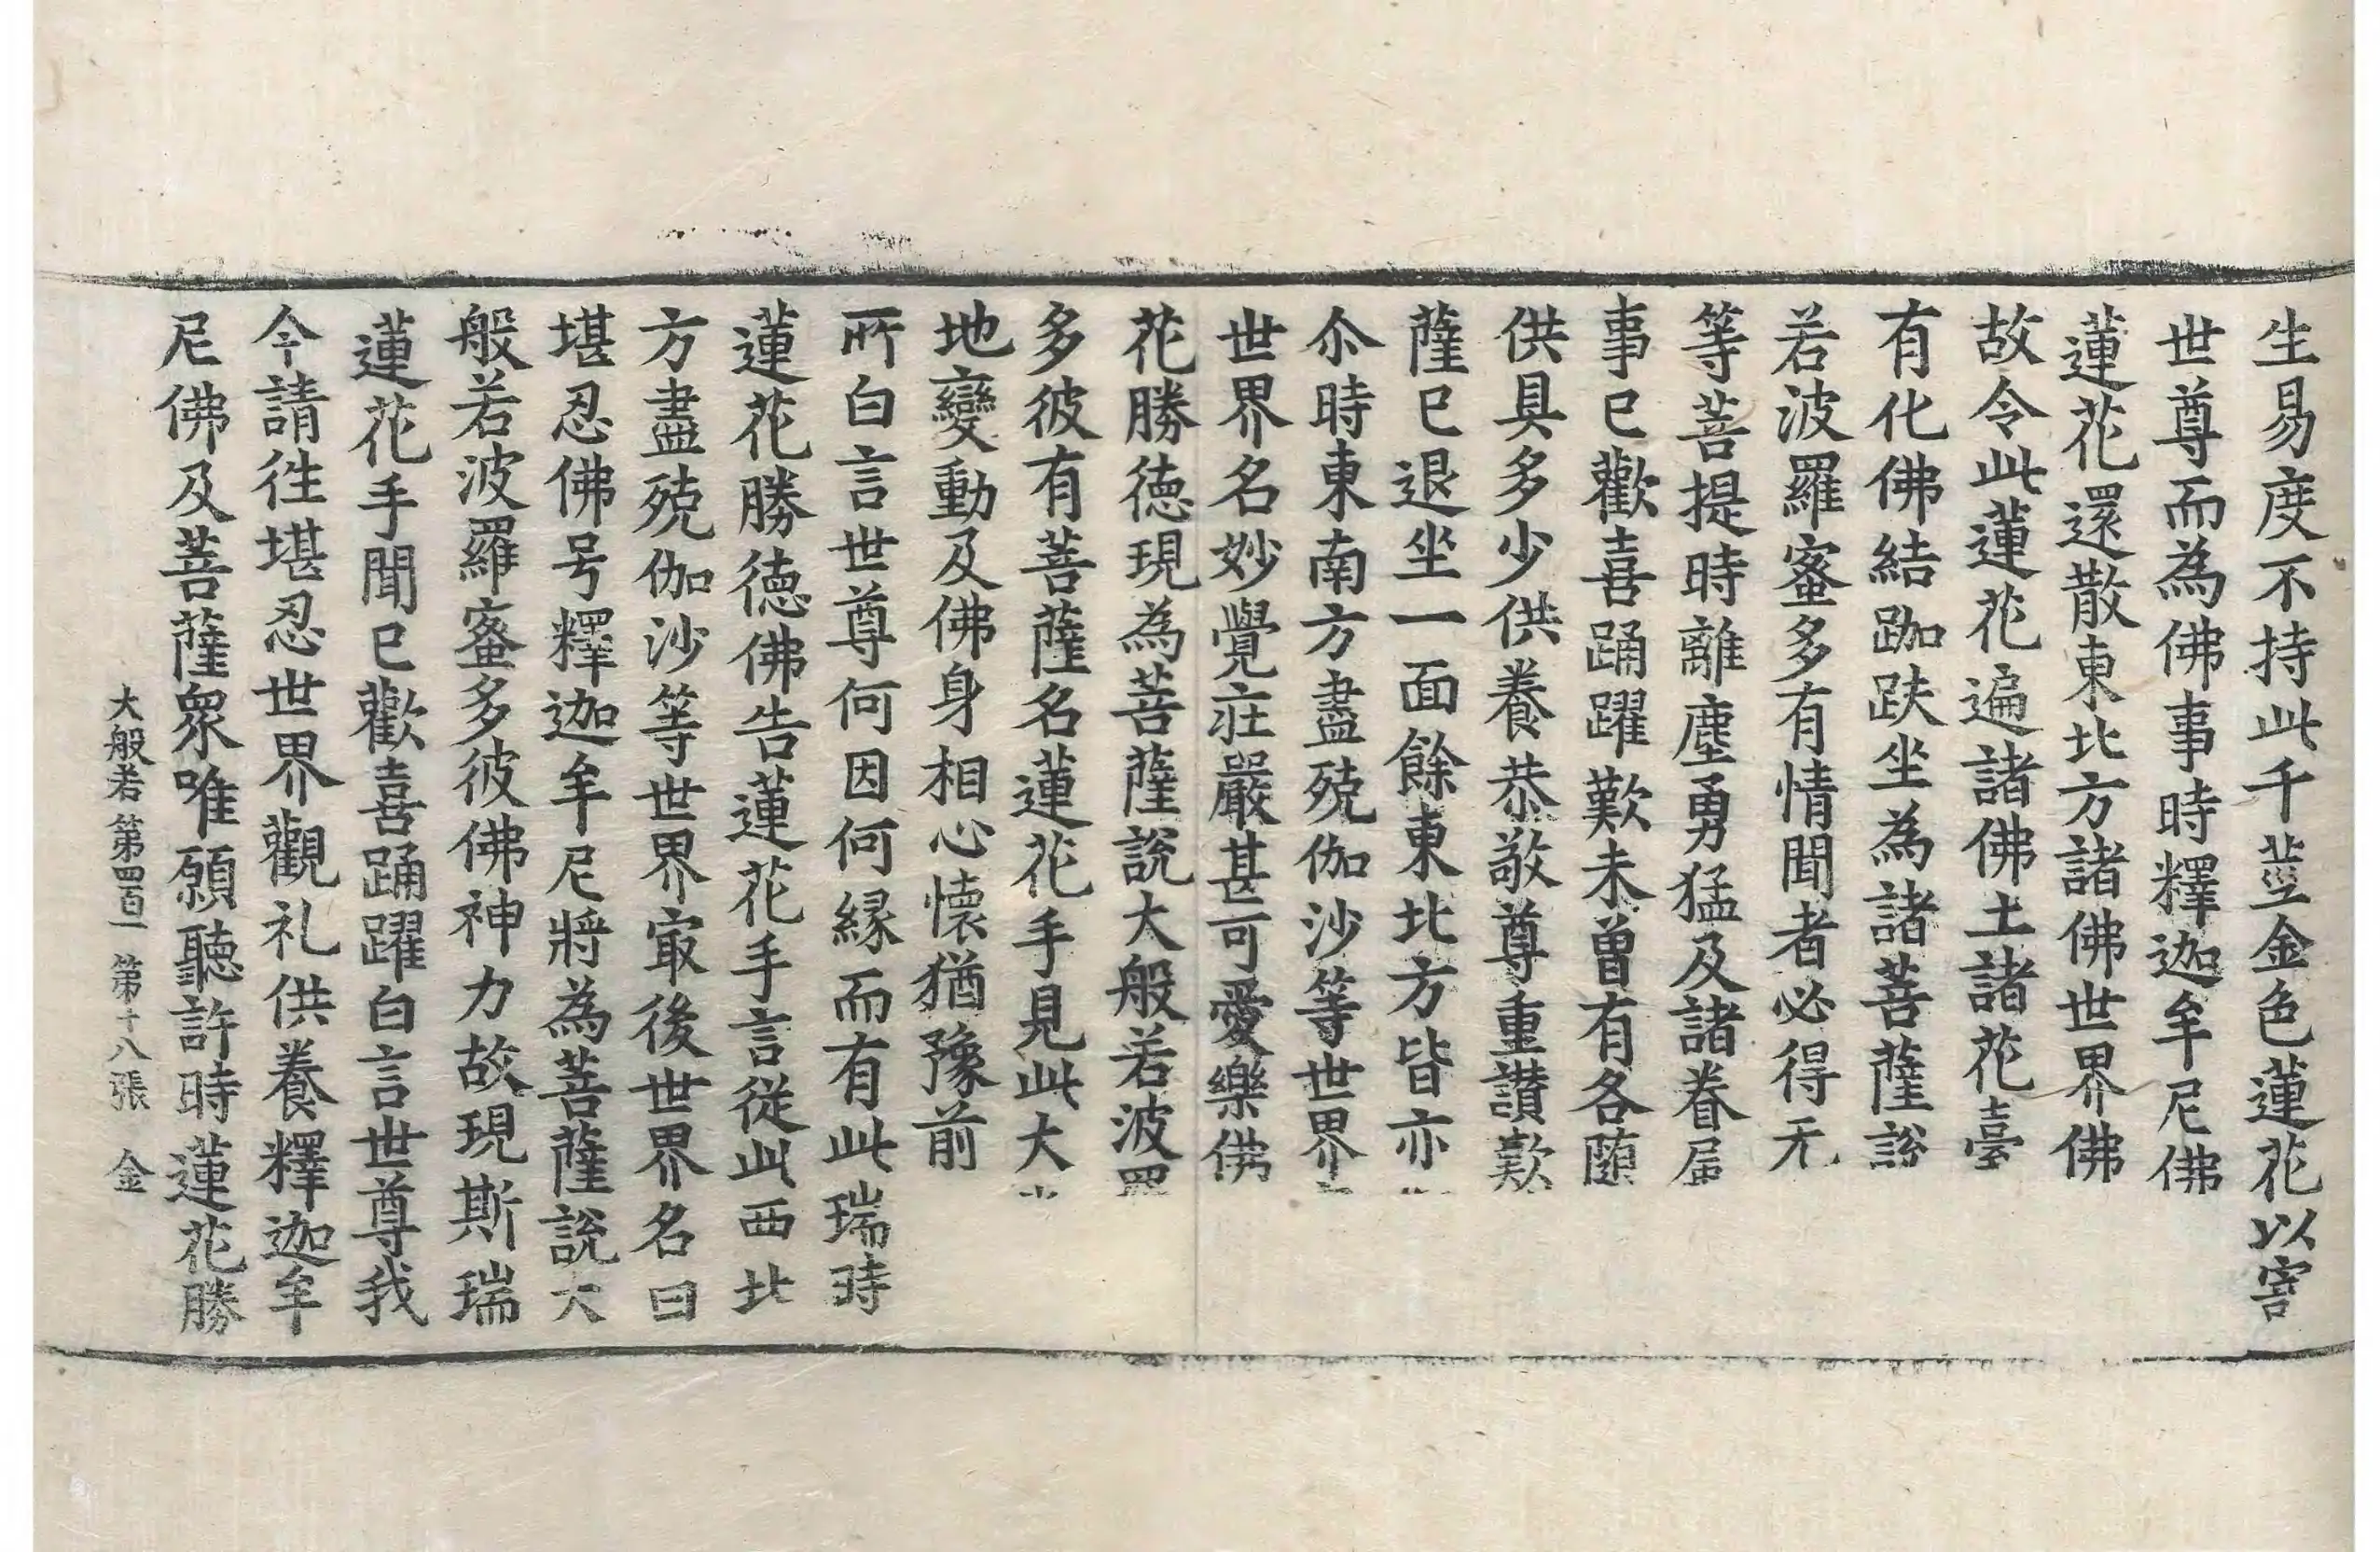 生易度不持此千莖金色蓮花以寄
世尊而為佛事時釋迦牟尼佛
蓮花還散東北方諸佛世界佛
故令此蓮花遍諸佛土諸花臺
有化佛結跏趺坐為諸菩薩說
若波羅蜜多有情聞者必得无
等菩提時離塵勇猛及諸眷屬
事已歡喜踊躍歎未曾有各随
供具多少供養恭敬尊重讃歎
薩已退坐一面餘東北方皆亦
尒時東南方盡殑伽沙等世界
世界名妙覺荘嚴甚可愛樂佛
花勝德現為菩薩說大般若波羅
多彼有菩薩名蓮花手見此大
地變動及佛身相心懷猶豫前
所白言世尊何因何縁而有此瑞時
蓮花勝德佛告蓮花手言從此西北
方盡殑伽沙等世界㝡後世界名曰
堪忍佛号釋迦牟尼將為菩薩說大
般若波羅蜜多彼佛神力故現斯瑞
蓮花手聞已歡喜踊躍白言世尊我
今請往堪忍世界觀礼供養釋迦牟
尼佛及菩薩衆唯願聽許時蓮花勝
大般若第四百一 第十八張 金